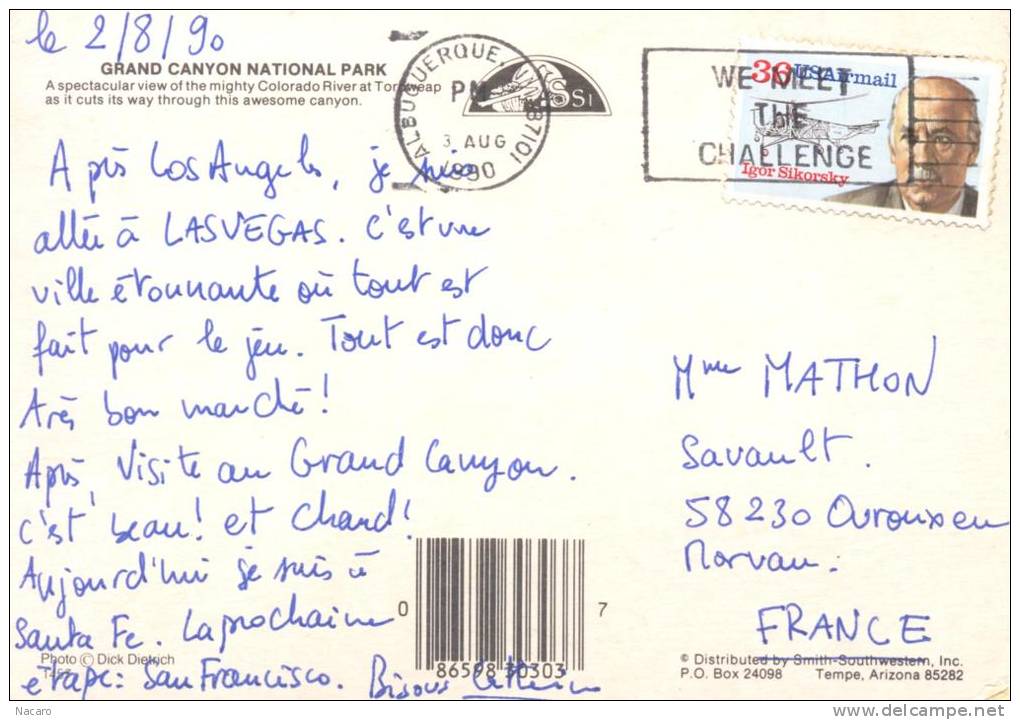 le 2/8/90
GRAND CANYON NATIONAL PARK
A spectacular view of the mighty Colorado River at Toroweap
as it cuts its way through this awesome canyon.
Après Los Angeles, je suis
allée à LAS VEGAS. C'est une
ville étonnante où tout est
fait pour le jeu. Tout est donc
très bon marché !
Après, visite au Grand Canyon.
C'est beau ! et chaud !
Aujourd'hui je suis à
Santa Fe. La prochaine
étape : San Francisco. Bisous Catherine
Photo © Dick Dietrich
ALBUQUERQUE, 87101
PM
3 AUG
1990
WE MEET
ThE
CHALLENGE
36 USAirmail
Igor Sikorsky
Mme MATHON
Savault.
58230 Ouroux en
Morvan.
FRANCE
0 86598 30303 7
© Distributed by Smith-Southwestern, Inc.
P.O. Box 24098 Tempe, Arizona 85282
Nacaro
http://www.delcampe.net